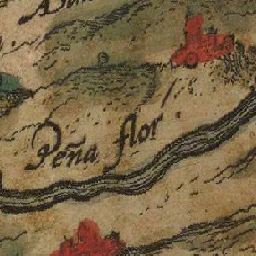 Peña flor